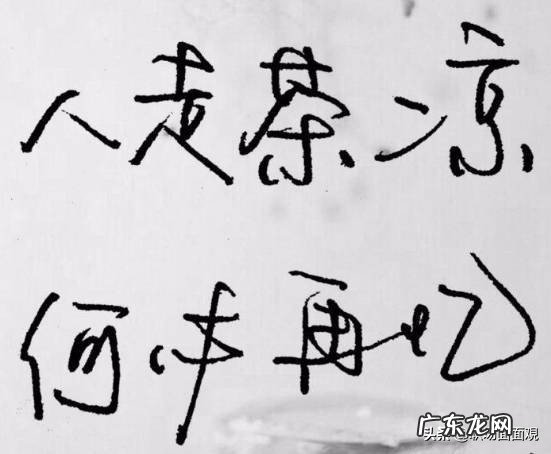 人走茶凉
何必再忆
广东龙网
头条
面面觀